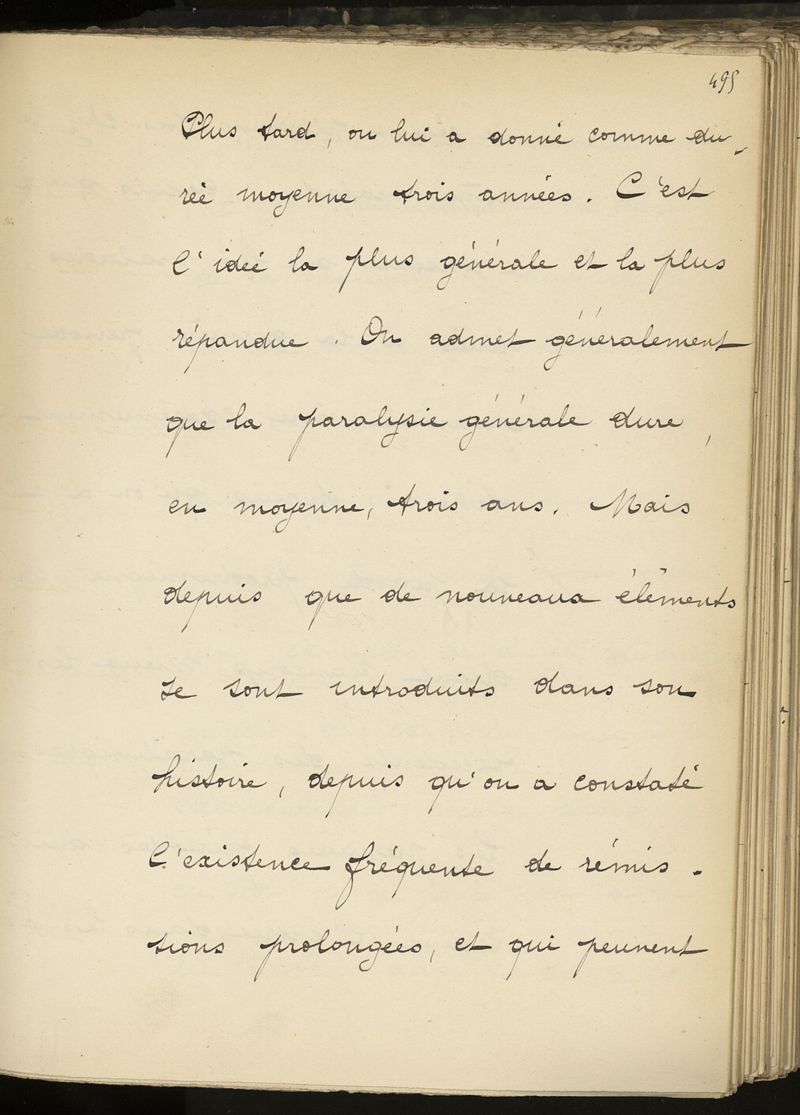 495
Plus tard, on lui a donné comme du-
rée moyenne trois années. C'est
l'idée la plus générale et la plus
répandue. On admet généralement
que la paralysie générale dure,
en moyenne, trois ans. Mais
depuis que de nouveaux éléments
se sont introduits dans son
histoire, depuis qu'on a constaté
l'existence fréquente de rémis-
sions prolongées, et qui peuvent